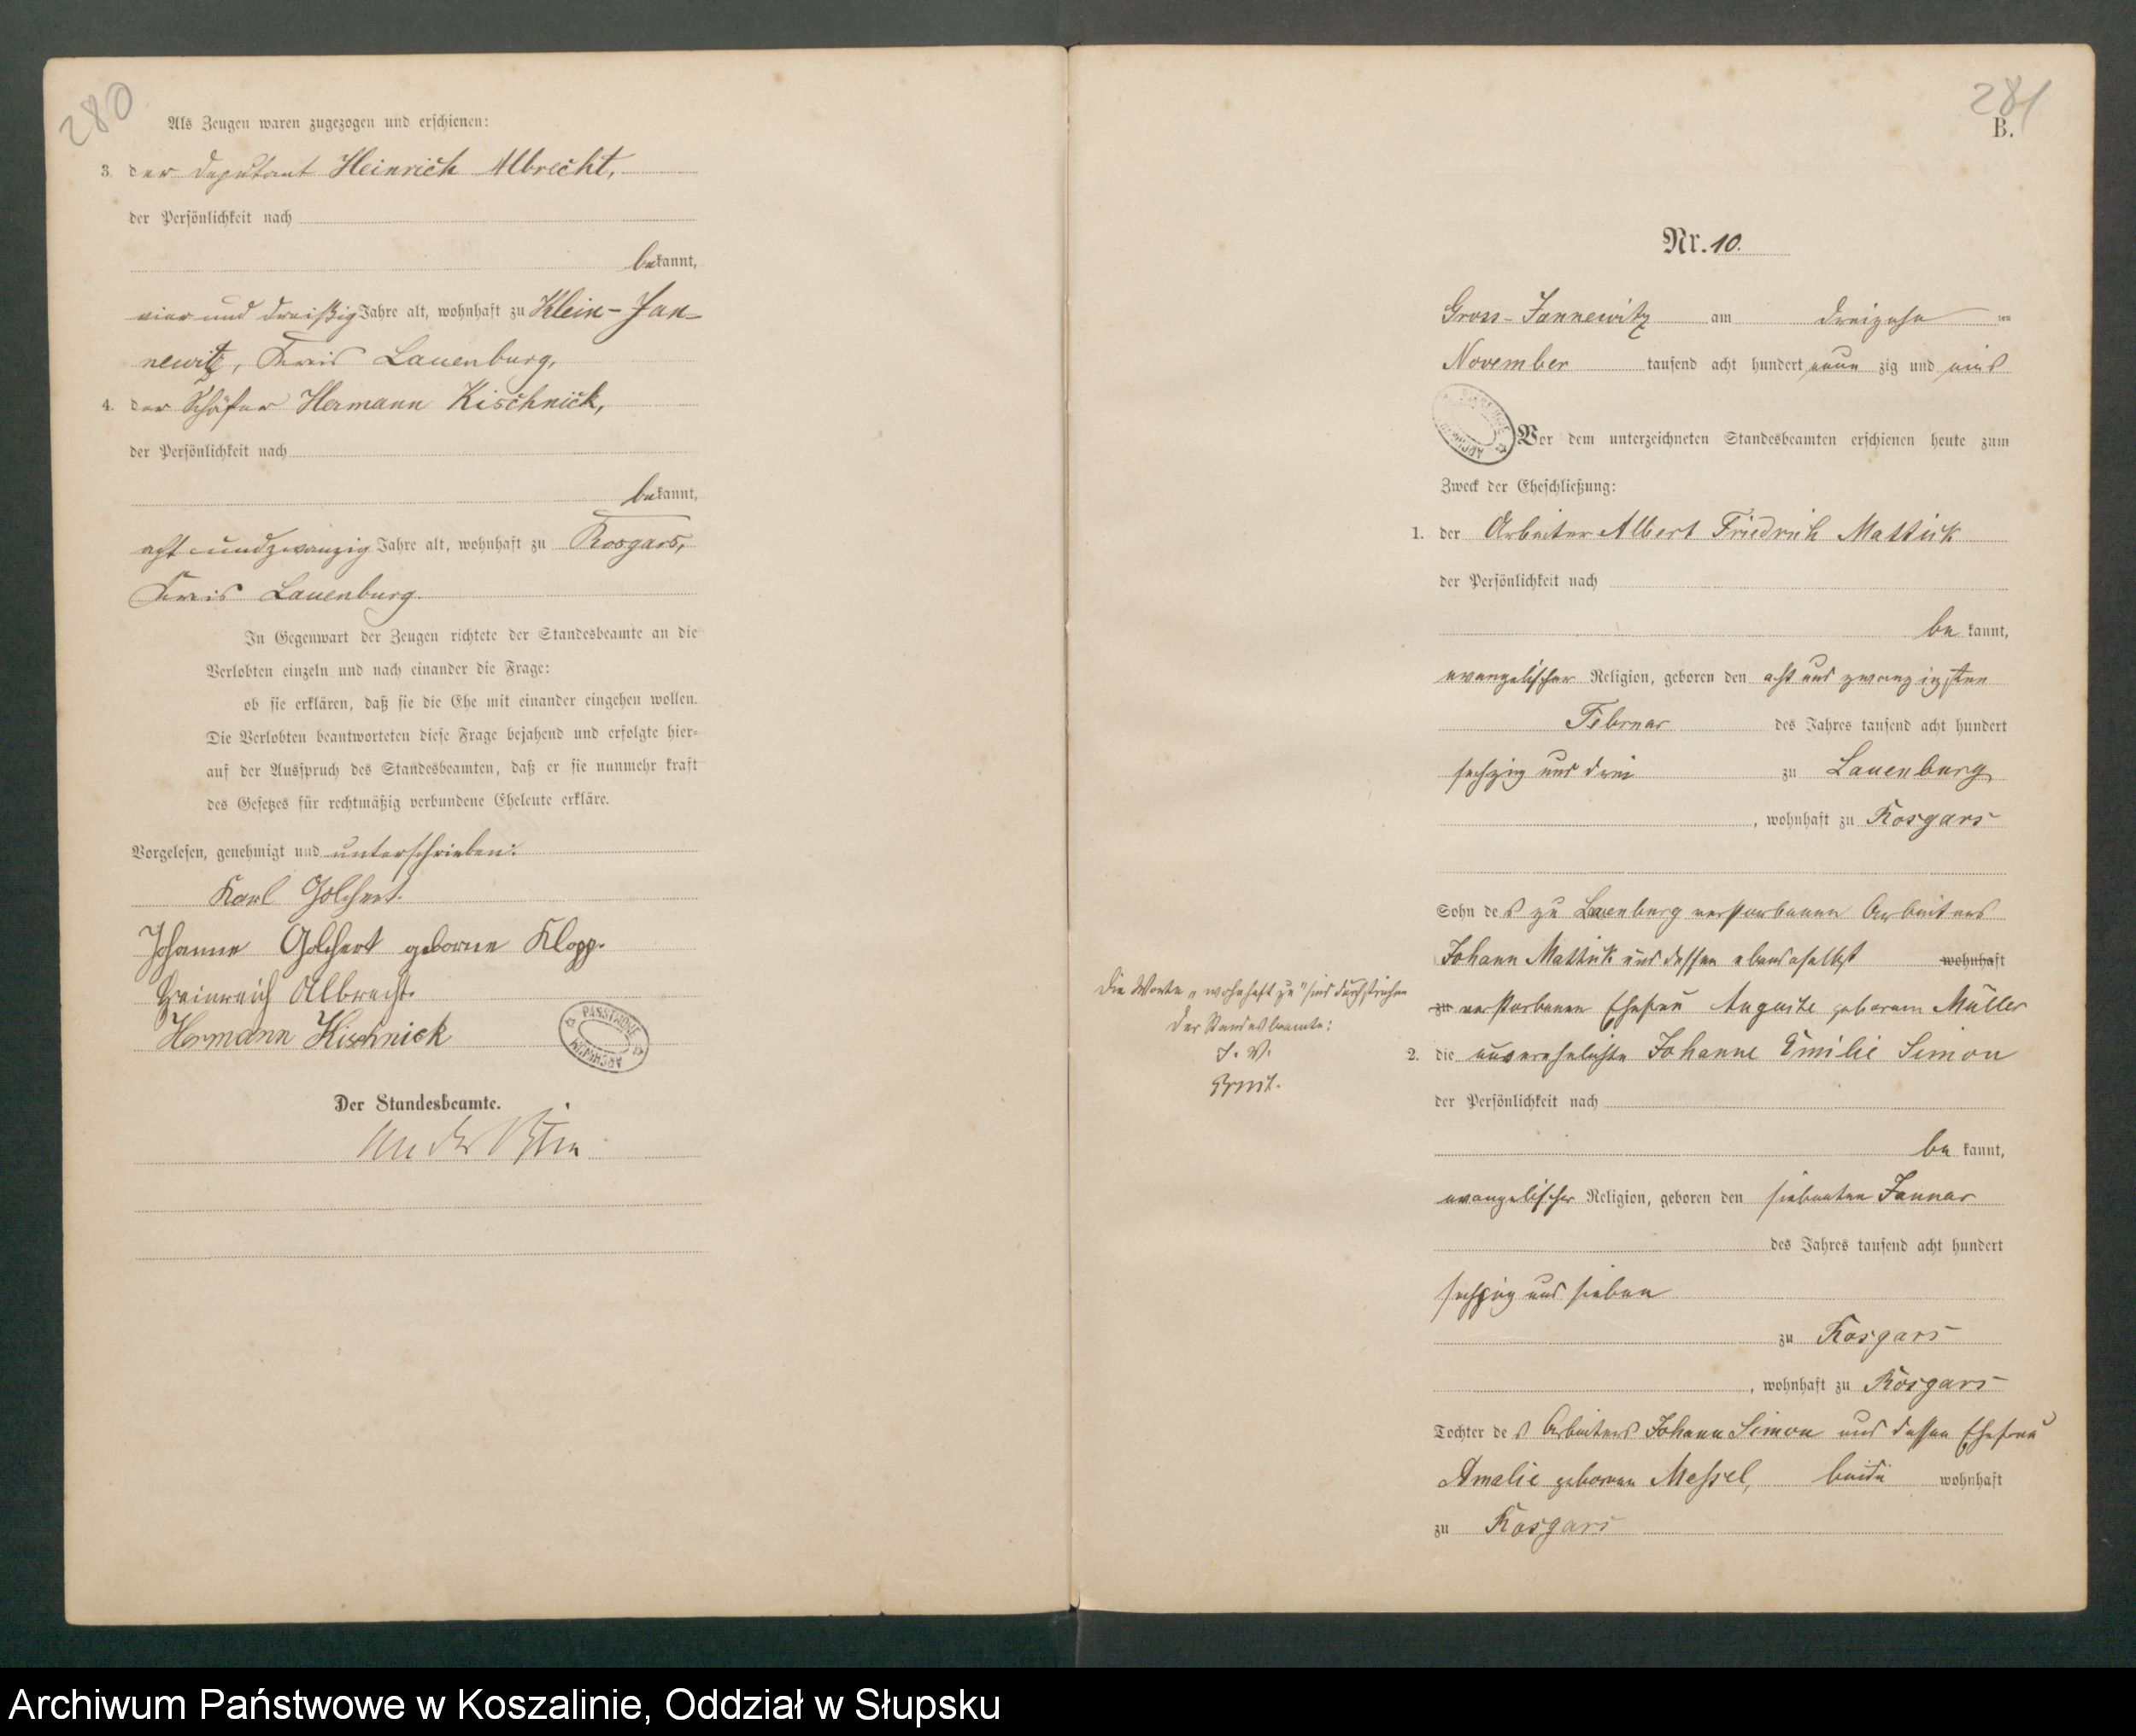 280
Als Zeugen waren zugezogen und erschienen:
3. der Deputant Heinrich Albrecht,
der Persönlichkeit nach
bekannt,
vier und dreißig Jahre alt, wohnhaft zu Klein-Jan-
newitz, Kreis Lauenburg,
4. der Schäfer Hermann Kischnick,
der Persönlichkeit nach
bekannt,
acht und zwanzig Jahre alt, wohnhaft zu Rosgars,
Kreis Lauenburg.
In Gegenwart der Zeugen richtete der Standesbeamte an die
Verlobten einzeln und nach einander die Frage:
ob sie erklären, daß sie die Ehe mit einander eingehen wollen.
Die Verlobten beantworteten diese Frage bejahend und erfolgte hier-
auf der Ausspruch des Standesbeamten, daß er sie nunmehr kraft
des Gesetzes für rechtmäßig verbundene Eheleute erkläre.
Vorgelesen, genehmigt und unterschrieben:
Karl Golchert.
Johanne Golchert geborne Klopp.
Heinreich Albrecht.
Hermann Kischnick
Der Standesbeamte.
281
B.
Nr. 10.
Gross-Jannewitz am dreizehn ten
November tausend acht hundert neun zig und eins
Vor dem unterzeichneten Standesbeamten erschienen heute zum
Zweck der Eheschließung:
1. der Arbeiter Albert Friedrich Mattick
der Persönlichkeit nach
be kannt,
evangelischer Religion, geboren den acht und zwanzigsten
Februar des Jahres tausend acht hundert
sechzig und drei zu Lauenburg
, wohnhaft zu Rosgars
Sohn des zu Lauenburg verstorbenen Arbeiters
Johann Mattick und dessen ebendaselbst wohnhaft
zu verstorbenen Ehefrau Auguste geborenen Müller
Die Worte „wohnhaft zu" sind durchstrichen
Der Standesbeamte:
J. V.
2. die unverehelichte Johanne Emilie Simon
der Persönlichkeit nach
be kannt,
evangelischer Religion, geboren den siebenten Januar
des Jahres tausend acht hundert
sechzig und sieben
zu Rosgars
, wohnhaft zu Rosgars
Tochter des Arbeiters Johann Simon und dessen Ehefrau
Amalie geborenen Messel, beide wohnhaft
zu Rosgars
Archiwum Państwowe w Koszalinie, Oddział w Słupsku